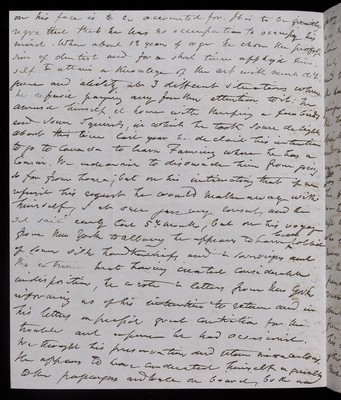 on his face is to be accounted for. It is to be greatly
regretted that he has no occupation to occupy his
mind. When about 18 years of age he chose the profes-
sion of dentist and for a short time applied him-
self to attain a knowledge of the art with much dili-
gence and ability, also 2 different situations where
he refused paying any further attention to it. He
amused himself at home with keeping a few birds
and some squirrels, in which he took some delight
about this time last year he declared his intention
to go to Canada to learn Farming where he has a
Cousin. We endeavoured to dissuade him from going
so far from home; but on his intimating that if we
refused his request he would make away with
himself, I at once gave my consent, and he
sailed early last
from New York to Albany he appears to have been robbed
of some silk handkerchiefs and
the extreme heat having created considerable
indisposition, he wrote 2 letters from New York
informing us of his intention to return and in
his letters expressed great contrition for the
trouble and expense he had occasioned.
We thought his preservation and return miraculous.
He appears to have conducted himself
to the passengers and crew on board, both